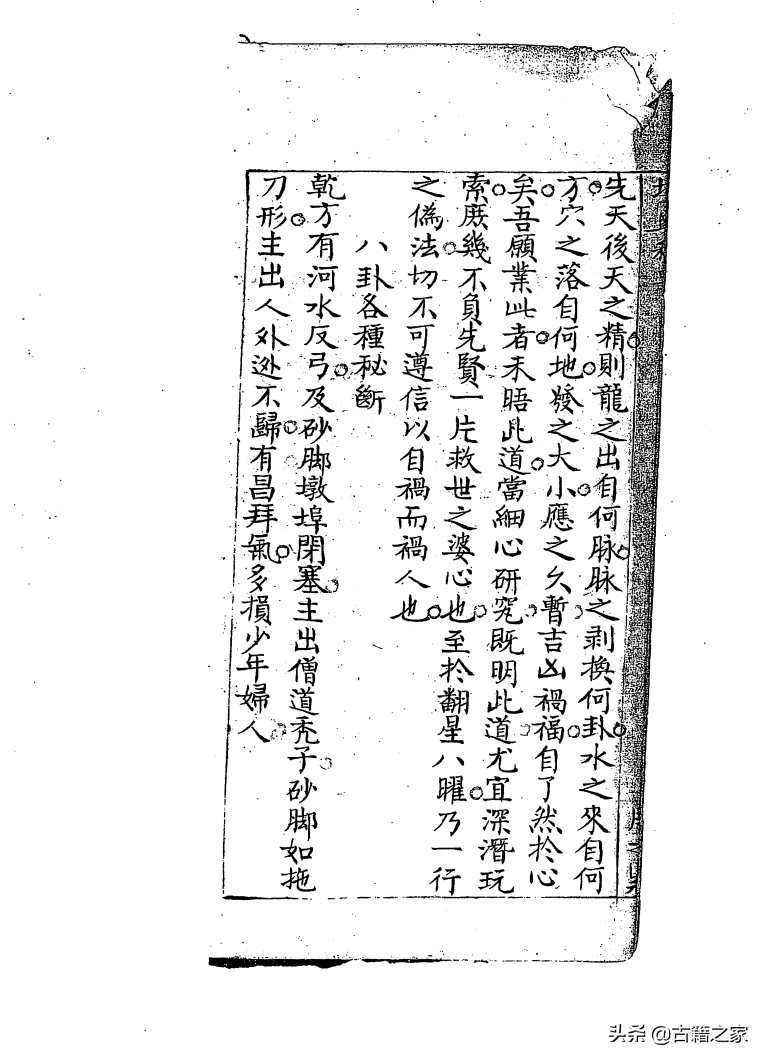 先天後天之精則龍之出自何脉脉之剥換何卦水之來自何
方穴之落自何地發之大小應之久暫吉凶禍福自了然於心
矣吾願業此者未晤此道當細心研究既明此道尤宜深潛玩
索庶幾不負先賢一片救世之婆心也至於翻星八曜乃一行
之偽法切不可遵信以自禍而禍人也
八卦各種秘斷
乾方有河水反弓及砂脚墩埠閉塞主出僧道秃子砂脚如拖
刀形主出人外逃不歸有昌拜氣多損少年婦人
头条 @古籍之家